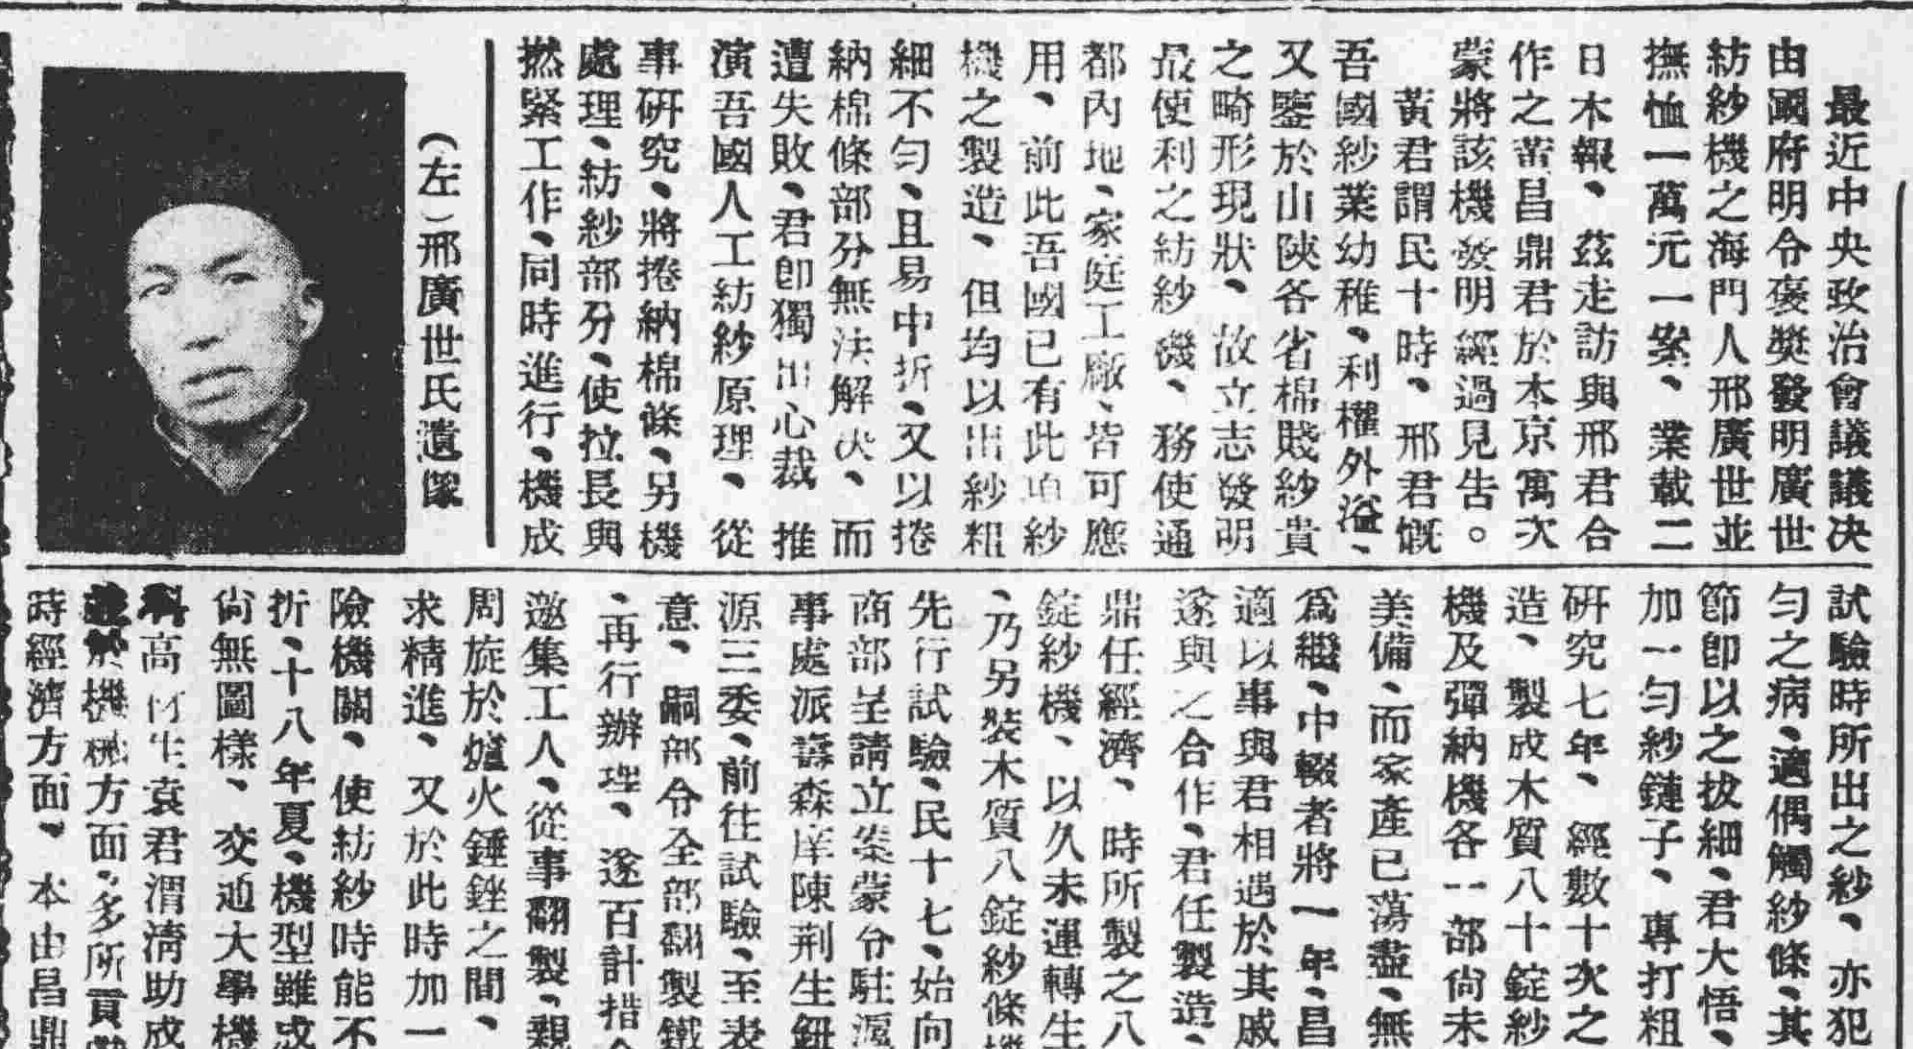 最近中央政治會議議决
由國府明令褒奬發明廣世
紡紗機之海門人邢廣世並
撫恤一萬元一案、業載二
日本報、茲走訪與邢君合
作之黃昌鼎君於本京寓次
蒙將該機發明經過見告。
黃君謂民十時、邢君慨
吾國紗業幼稚、利權外溢、
又鑒於山陝各省棉賤紗貴
之畸形現狀、故立志發明
最便利之紡紗機、務使通
都內地、家庭工廠、皆可應
用、前此吾國已有此項紗
機之製造、但均以出紗粗
細不勻、且易中折、又以捲
納棉條部分無法解决、而
遭失敗、君卽獨出心裁 推
演吾國人工紡紗原理、從
事硏究、將捲納棉條、另機
處理、紡紗部分、使拉長與
撚緊工作、同時進行、機成
(左)邢廣世氏遺像
試驗時所出之紗、亦犯
勻之病、適偶觸紗條、其
節卽以之拔細、君大悟、
加一勻紗鏈子、專打粗
硏究七年、經數十次之
造、製成木質八十錠紗
機及彈納機各一部尙未
美備、而家產已蕩盡、無
爲繼、中輟者將一年、昌
適以事與君相遇於其戚
遂與之合作、君任製造、
鼎任經濟、時所製之八
錠紗機、以久未運轉生
、乃另裝木質八錠紗條機
先行試驗、民十七、始向
商部呈請立案蒙分駐滬
事處派壽森庠陳荆生鈕
源三委、前往試驗、至表
意、嗣部令全部翻製鐵
、再行辦理、遂百計措
邀集工人、從事翻製、親
周旋於爐火錘銼之間、
求精進、又於此時加一
險機關、使紡紗時能不
折、十八年夏、機型雖成
尙無圖樣、交通大學機
科高材生袁君渭淸助成
於機械方面、多所貢獻
時經濟方面、本由昌鼎